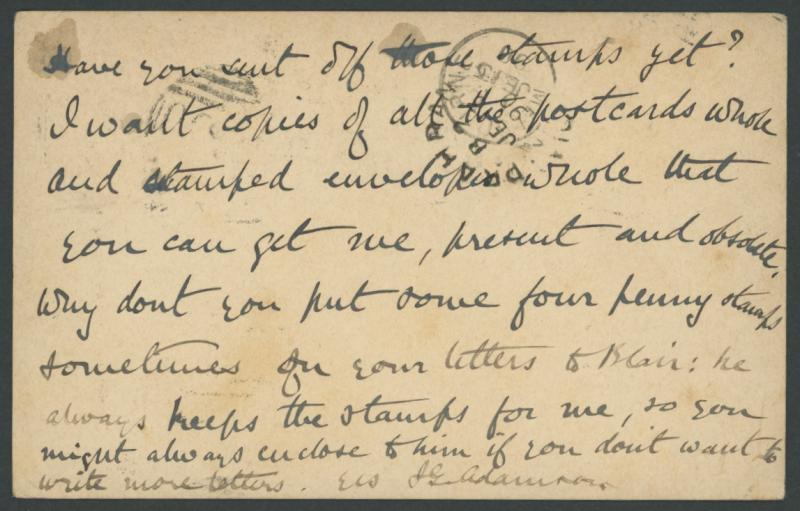 Have you sent off those stamps yet?
I want copies of all the postcards whole
and stamped envelopes whole that
you can get me, present and obsolete.
Why dont you put some four penny stamps
sometimes on your letters to Blair: he
always keeps the stamps for me, so you
might always enclose to him if you don't want to
write more letters. Adamson
DURHAM